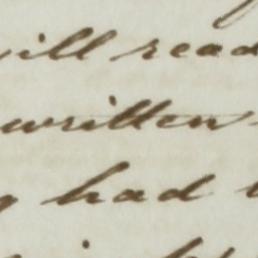 will read
written
had